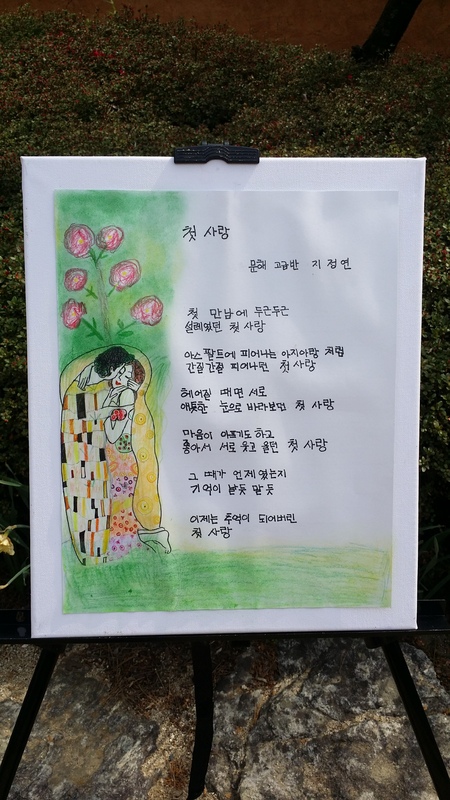 첫 사랑
문해 고급반 지정연
첫 만남에 두근두근
설레였던 첫 사랑
아스팔트에 피어나는 아지아랑 처럼
간질간질 피어나런 첫 사랑
헤어질 때면 서로
애틋한 눈으로 바라보던 첫 사랑
마음이 아프기도 하고
좋아서 서로 웃고 울던 첫 사랑
그 때가 언제였는지
기억이 날듯 말듯
이제는 추억이 되어버린
첫 사랑